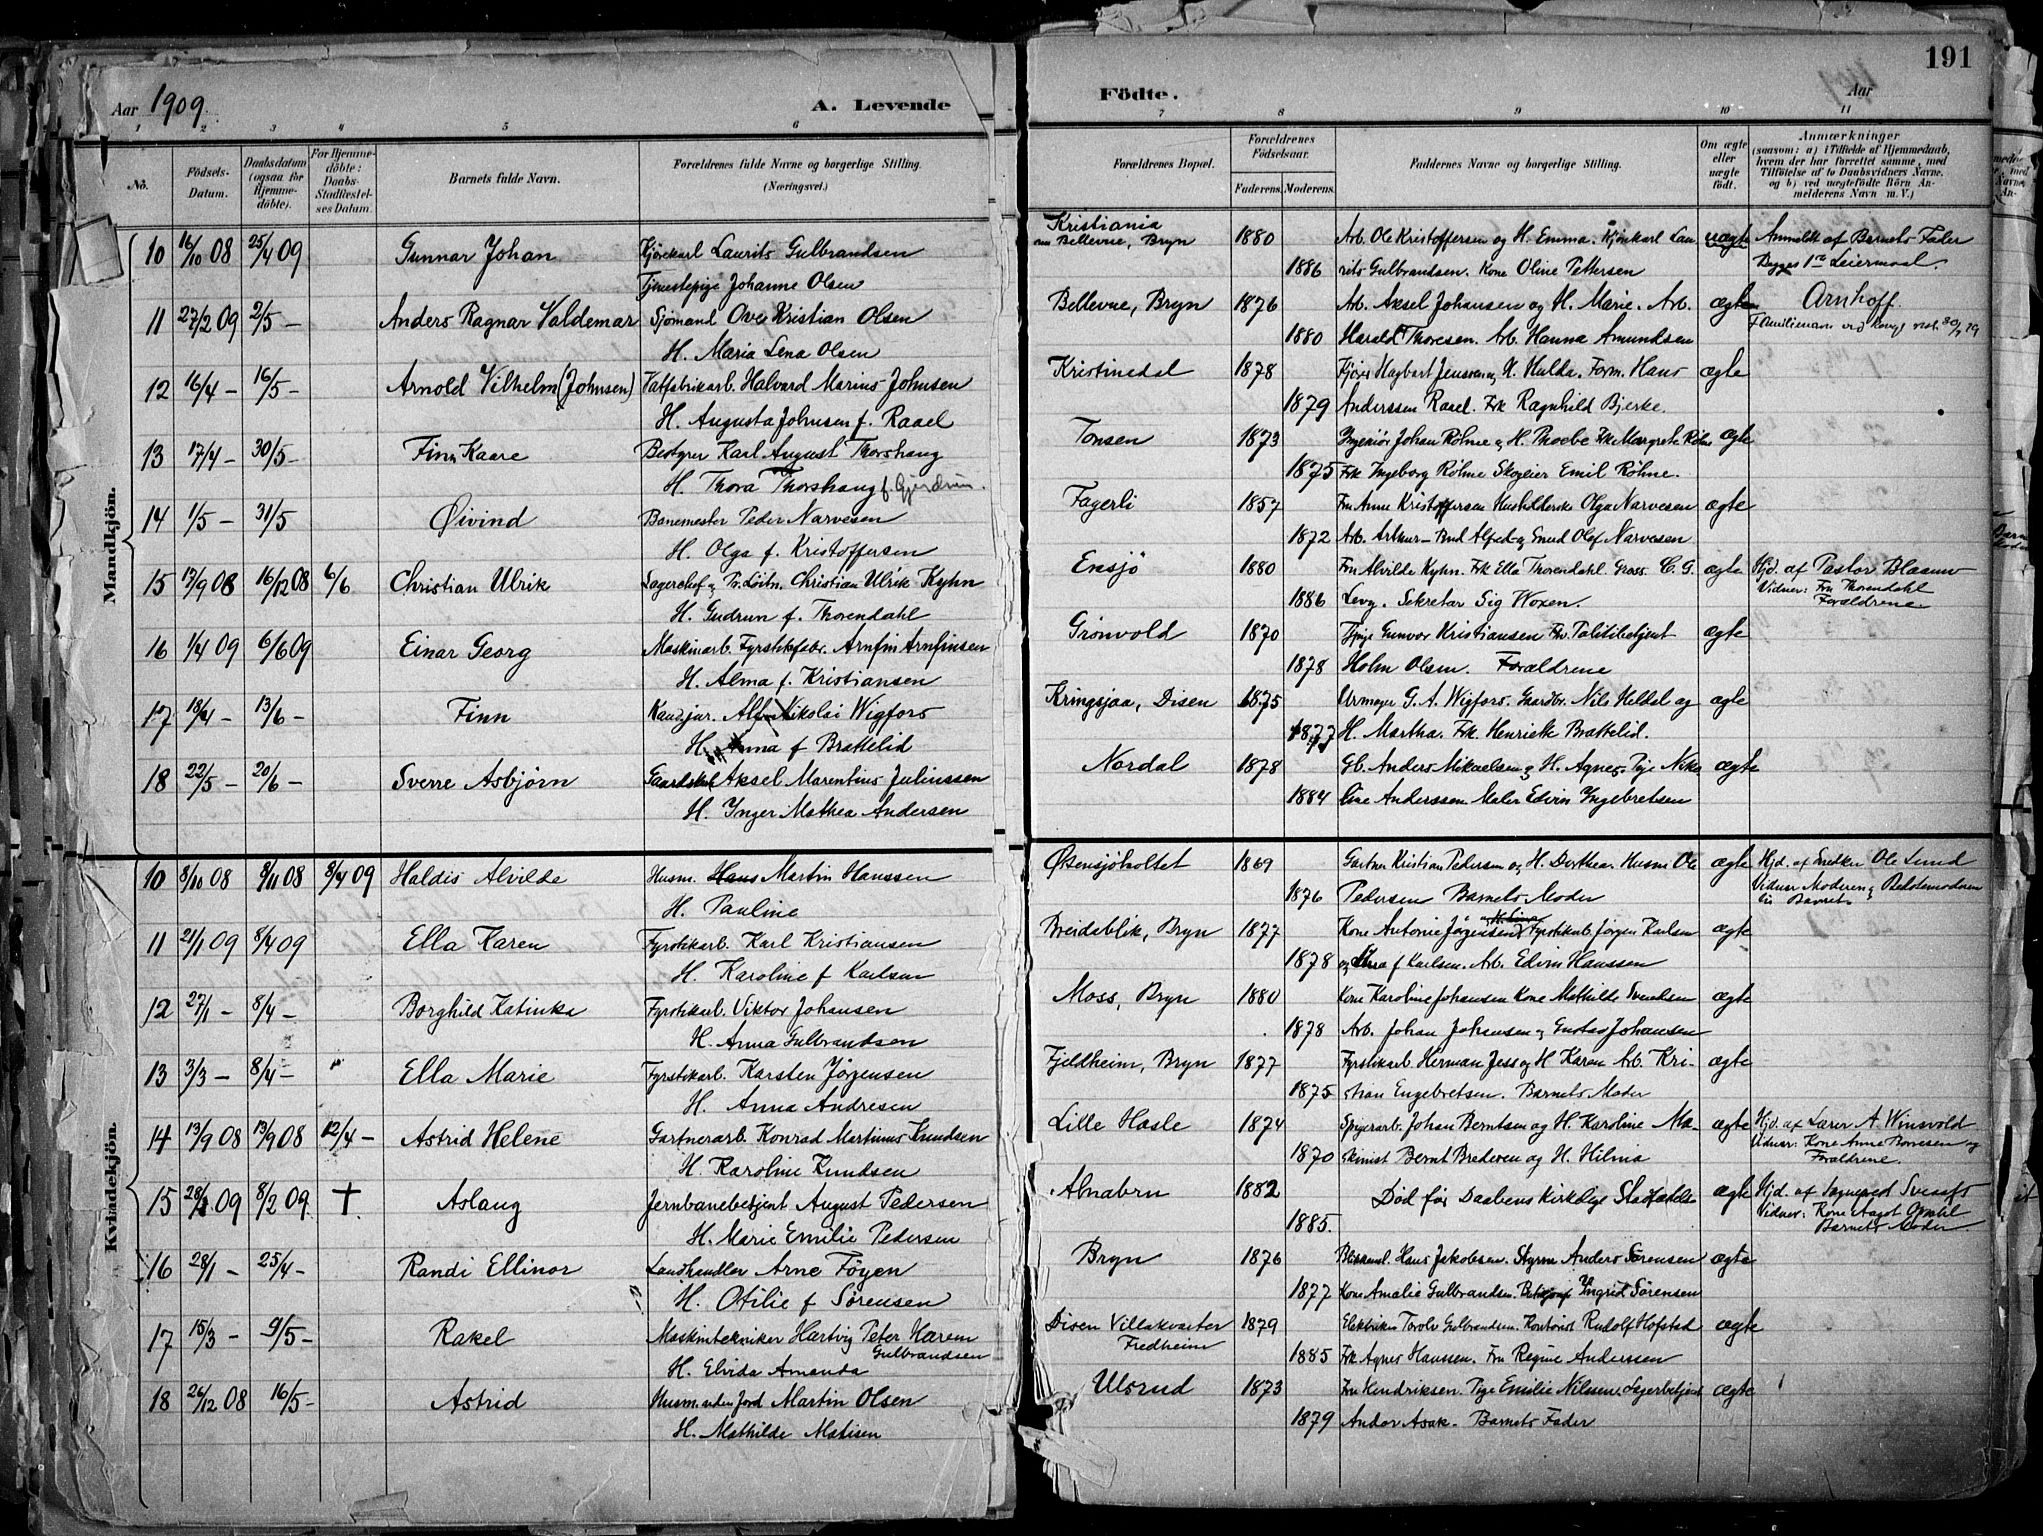 191
Aar 1909.
A. Levende
Födte.
Aar
1 2 3 4 5 6 7 8 9 10 11
No.
Födsels-Datum.
Daabsdatum (ogsaa for Hjemme-döbte).
For Hjemme-döbte: Daabs-Stadfæstel-ses Datum.
Barnets fulde Navn.
Forældrenes fulde Navne og borgerlige Stilling. (Næringsvei.)
Forældrenes Bopæl.
Forældrenes Födselsaar.
Faderens. Moderens.
Faddernes Navne og borgerlige Stilling.
Om ægte eller uægte födt.
Anmærkninger
(saasom: a) i Tilfælde af Hjemmedaab, hvem der har forrettet samme, med Tilföielse af to Daabsvidners Navne, og b) ved uægtefödte Börn An-melderens Navn m. V.)
Mandkjön.
10 16/10 08 25/4 09 Gunnar Johan Kjørekarl Laurits Gulbrandsen Kristiania 1880 Arb. Ole Kristoffersen og H. Emma. Kjørekarl Lau- uægte Anmeldt af Barnets Fader
Tjenestepige Johanne Olsen Bellevue, Bryn 1886 rits Gulbrandsen. Kone Oline Pettersen Begges 1ste Leiermaal.
11 27/2 09 2/5 – Anders Ragnar Valdemar Sjömand Ove Kristian Olsen Bellevue, Bryn 1876 Arb. Aksel Johansen og H. Marie. Arb. ægte Arnhoff.
H. Maria Lena Olsen 1880 Harald Thoresen. Arb. Hanna Amundsen
12 16/4 – 16/5 – Arnold Vilhelm (Johnsen) Vatfabrikarb. Halvard Marius Johnsen Kristinedal 1878 Hagbart Jenssen og H. Hulda. Form. Hans ægte
H. Augusta Johnsen f. Raael 1879 Anderssen Raael. Frk Ragnhild Bjerke.
13 17/4 – 30/5 – Finn Kaare Bestyrer Karl August Thorshaug Tonsen 1873 Ingeniør Johan Röhne og H. Phoebe Frk Margrete Röhne ægte
H. Thora Thorshaug f. Gjerdrum. 1875 Frk Ingeborg Röhne Skogeier Emil Röhne.
14 1/5 – 31/5 Øivind Banemester Peder Narvesen Fagerli 1857 Fru Anne Kristoffersen Husholderske Olga Narvesen ægte
H. Olga f. Kristoffersen 1872 Arb. Arthur – Bud Alfred og Gmd Olof Narvesen
15 17/9 08 16/12 08 6/6 Christian Ulrik Lagerchef og Pr.Löitn. Christian Ulrik Kyhn Ensjö 1880 Fru Alvilde Kyhn. Frk Ella Thorendahl. Gross. C. G. ægte Hjd. af Pastor Blaauw
H. Gudrun f. Thorendahl 1886 Levy. Sekretær Sig Woxen. Vidner: Fru Thorendahl Forældrene
16 1/4 09 6/6 09 Einar Georg Maskinarb. Fyrstikfabr. Arnfin Arnfinsen Grönvold 1870 Tjpige Gunvor Kristiansen Fhv. Politibetjent ægte
H. Alma f. Kristiansen 1878 Holm Olsen. Forældrene
17 18/4 – 13/6 – Finn Kandjur. Alf Nikolai Wigfors Kringsjaa, Disen 1875 Urmager G. A. Wigfors. Gaardbr. Nils Heldal og ægte
H. Anna f Brattelid 1877 H. Martha. Frk. Henriette Brattelid.
18 22/5 – 20/6 – Sverre Asbjörn Aksel Marentius Juliussen Nordal 1878 Gb. Anders Mikaelsen og H. Agnes. Pige Niko ægte
H. Inger Mathea Andersen 1884 line Anderssen Maler Edvin Ingebretsen
Kvindekjön.
10 8/10 08 8/11 08 8/4 09 Haldis Alvilde Husm. Hans Martin Hanssen Østensjöholtet 1869 Gartner Kristian Pedersen og H. Dorthea. Husm. Ole ægte Hjd. af Snedker Ole Lund
H. Pauline 1876 Pedersen Barnets Moder Vidner Moderen og Bedstemoderen til Barnet
11 21/1 09 8/4 09 Ella Karen Fyrstikarb. Karl Kristiansen Breidablik, Bryn 1877 Kone Antonie Jörgensen Fyrstikarb. Jörgen Karlsen ægte
H. Karoline f Karlsen 1878 og f Karlsen. Arb. Edvin Hanssen
12 27/1 – 8/4 – Borghild Katinka Fyrstikarb. Viktor Johansen Moss, Bryn 1880 Kone Karoline Johansen Kone Mathilde Svendsen ægte
H. Anna Gulbrandsen 1878 Arb. Johan Johansen og Gustav Johansen
13 3/3 – 8/4 – Ella Marie Fyrstikarb. Karsten Jörgensen Fjeldheim, Bryn 1877 Fyrstikarb Herman Jess og H Karen Arb. Kri- ægte
H. Anna Andresen 1875 stian Engebretsen. Barnets Moder
14 13/9 08 13/9 08 12/4 – Astrid Helene Gartnerarb. Konrad Martinus Knudsen Lille Hasle 1874 Spigerarb. Johan Berntsen og H. Karoline Ma- ægte Hjd. af Lærer A. Winsvold
H. Karoline Knudsen 1870 skinist Bernt Bredesen og H. Hilma Vidner: Kone Anne og Forældrene.
15 28/1 09 8/2 09 † Aslaug Jernbanebetjent August Pedersen Alnabru 1882 Död før Daabens kirkelige Stadfæstelse ægte Hjd. af Sogneprest
H. Marie Emilie Pedersen 1885. Vidner: Kone Aagot Barnets Moder
16 28/1 – 25/4 – Randi Ellinor Landhandler Arne Föyen Bryn 1876 Hans Jakobsen. Styrm Anders Sörensen ægte
H. Otilie f Sörensen 1877 Kone Amalie Gulbrandsen. Ingrid Sörensen
17 15/3 – 9/5 – Rakel Maskintekniker Hartvig Peter Harem Gulbrandsen Disen Villakvarter 1879 Elektriker Torolv Gulbrandsen. Kontorist Rudolf Hofstad ægte
H. Elvida Amanda Fredheim 1885 Frk Agnes Hanssen. Fru Regine Anderssen
18 26/12 08 16/5 – Astrid Husm. uden Jord Martin Olsen Ulsrud 1873 Fru Hendriksen. Pige Emilie Nilsen. Lagerbetjent ægte
H. Mathilde Matisen 1879 Andor Asak. Barnets Fader